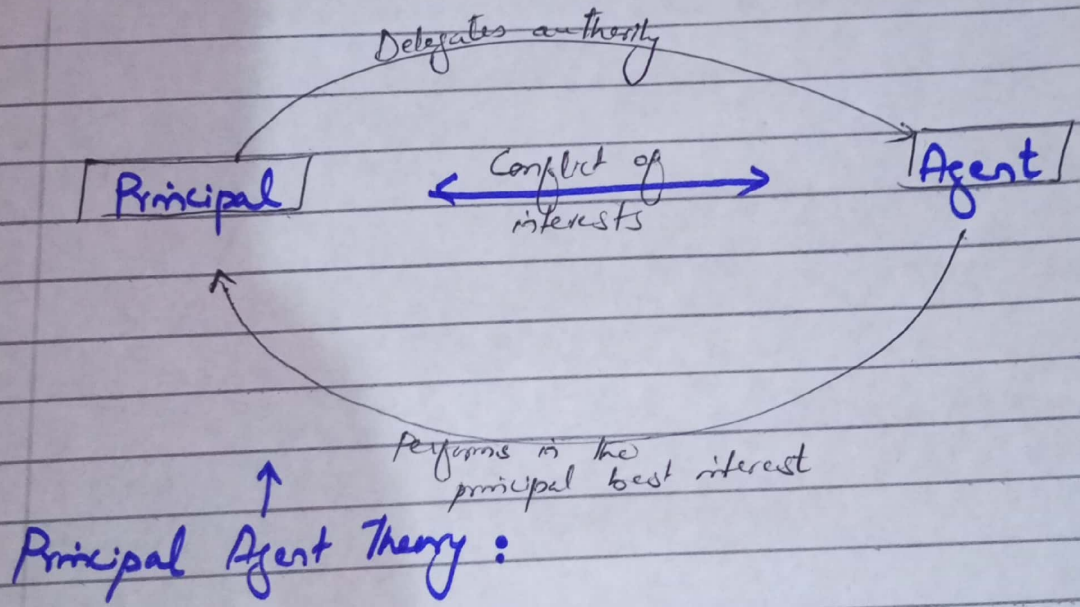 Delegates authority
Principal
Conflict of
interests
Agent
Performs in the
principal best interest
Principal Agent Theory: